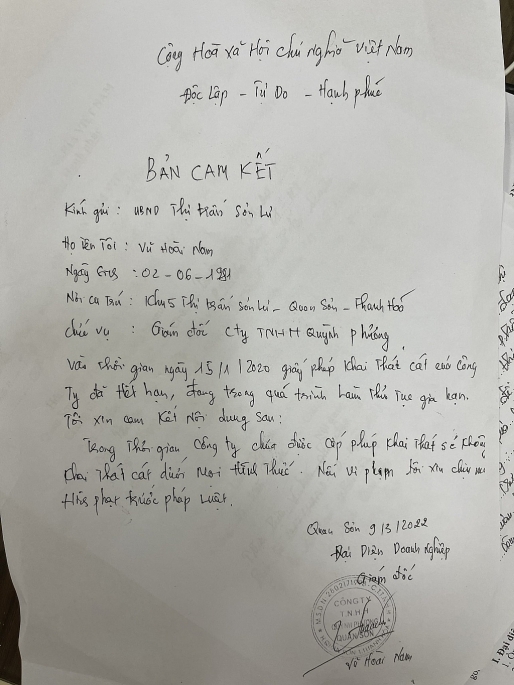 Cộng Hoà xã Hội chủ Nghĩa Việt Nam
Độc Lập - Tự Do - Hạnh phúc
BẢN CAM KẾT
Kính gửi : UBND Thị trấn Sơn Lư
Họ tên Tôi : Vũ Hoài Nam
Ngày Sinh : 02-06-1981
Nơi cư trú : Khu 5 Thị trấn Sơn Lư - Quan Sơn - Thanh Hoá
chức vụ : Giám đốc Cty TNHH Quỳnh phương
Vào thời gian ngày 15/1/2020 giấy phép khai thác cát của công
Ty đã Hết hạn, đang trong quá trình Làm thủ tục gia hạn.
Tôi xin cam kết Nội dung sau:
Trong Thời gian Công ty chưa được cấp phép khai thác sẽ không
khai thác cát dưới mọi Hình Thức. Nếu vi phạm tôi xin chịu mọi
Hình phạt trước pháp Luật.
Quan Sơn 9/3/2022
Đại Diện Doanh Nghiệp
Giám đốc
CÔNG TY
T.N.H.H
QUAN SƠN
Vũ Hoài Nam